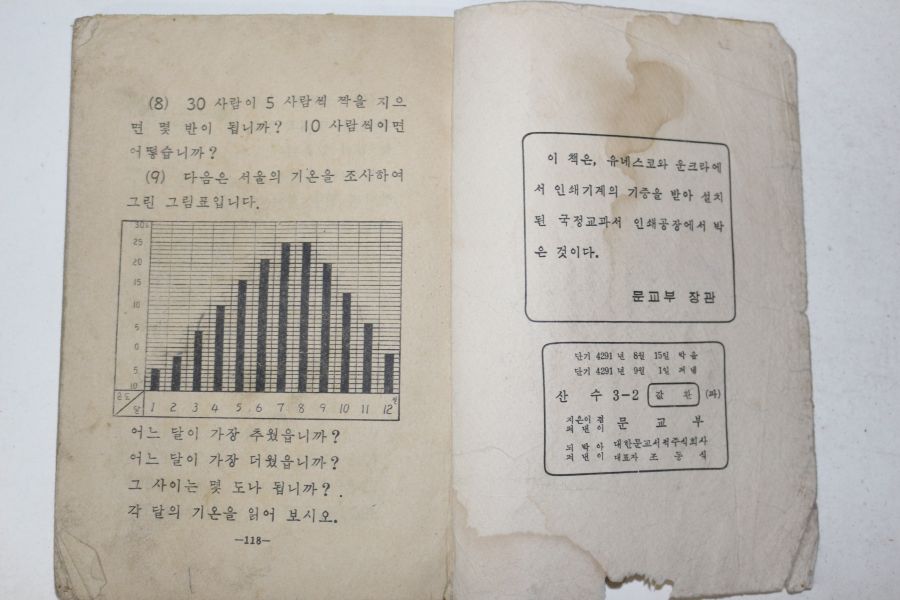 (8) 30 사람이 5 사람씩 짝을 지으
면 몇 반이 됩니까? 10 사람씩이면
어떻습니까?
(9) 다음은 서울의 기온을 조사하여
그린 그림표입니다.
30
25
20
15
10
5
0
5
10
온도
달
1 2 3 4 5 6 7 8 9 10 11 12 월
어느 달이 가장 추웠읍니까?
어느 달이 가장 더웠읍니까?
그 사이는 몇 도나 됩니까?
각 달의 기온을 읽어 보시오.
—118—
이 책은, 유네스코와 운크라에
서 인쇄기계의 기증을 받아 설치
된 국정교과서 인쇄공장에서 박
은 것이다.
문교부 장관
단기 4291 년 8월 15일 박음
단기 4291 년 9월 1일 펴냄
산 수 3-2 값 환 (파)
지은이 겸 펴낸이 문 교 부
되박아 펴낸이 대한문교서적주식회사
대표자 조 동 식